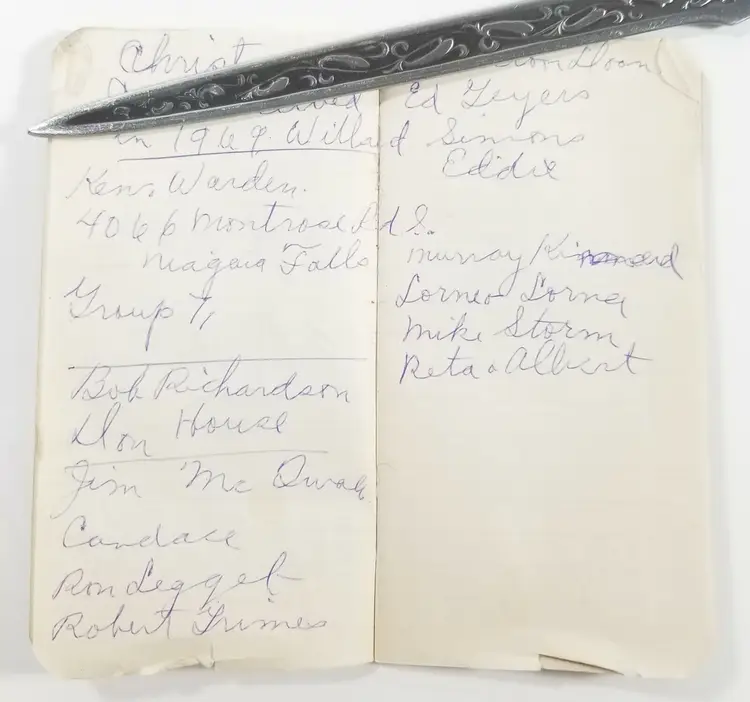 Christ
in 1969. Willard
Kens Warden.
4066 Montrose Rd S.
Niagara Falls
Group 7,
Bob Richardson
Don House
Jim Mc
Candace
Ron Legget
Robert Grimes
Ed Geyers
Simons
Eddie
Murray
Lorne Lorna
Mike Storm
Reta & Albert